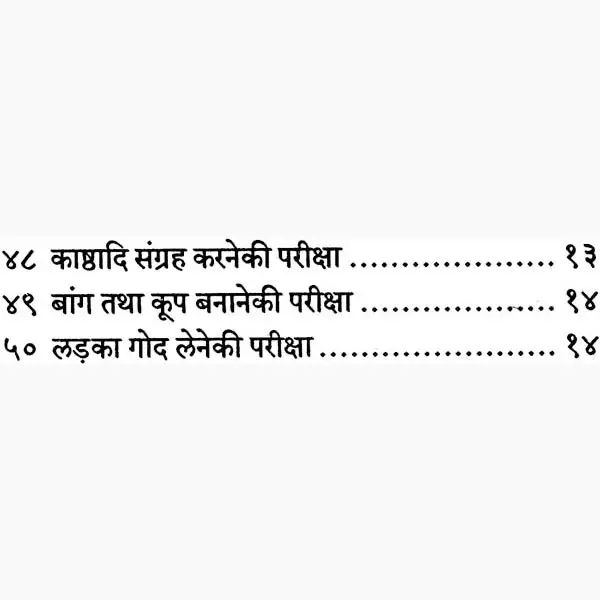 ४८ काष्ठादि संग्रह करनेकी परीक्षा ..................... १३
४९ बांग तथा कूप बनानेकी परीक्षा .................... १४
५० लड़का गोद लेनेकी परीक्षा ......................... १४